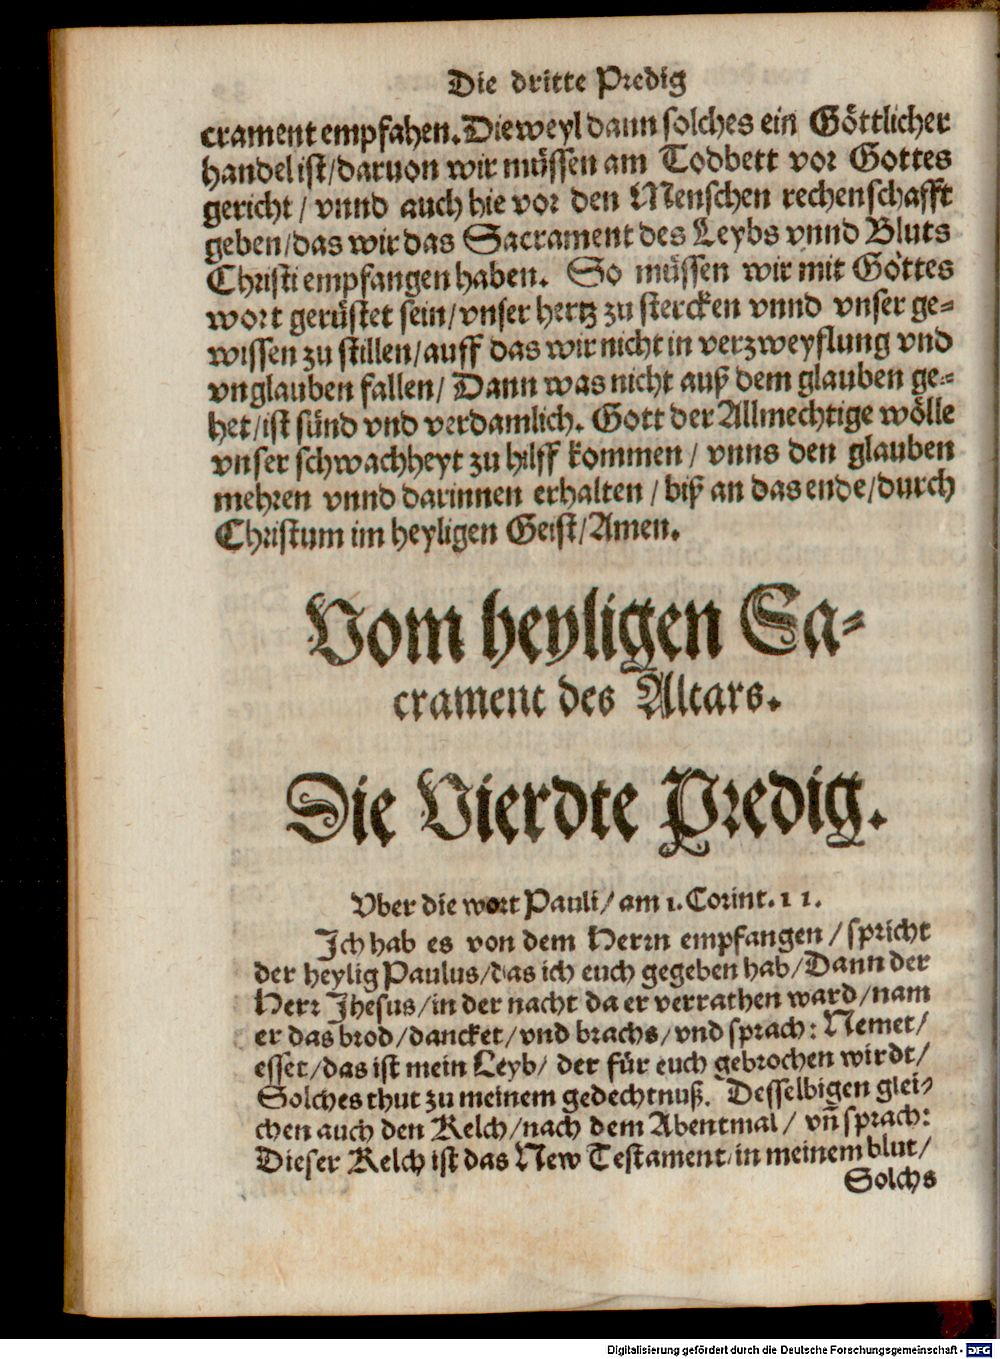 Die dritte Predig
crament empfahen. Dieweyl dann solches ein Göttlicher
handel ist/ daruon wir müssen am Todbett vor Gottes
gericht / vnnd auch hie vor den Menschen rechenschafft
geben/ das wir das Sacrament des Leybs vnnd Bluts
Christi empfangen haben. So müssen wir mit Gottes
wort gerüstet sein/ vnser hertz zu stercken vnnd vnser ge=
wissen zu stillen/ auff das wir nicht in verzweyflung vnd
vnglauben fallen/ Dann was nicht auß dem glauben ge=
het/ ist sünd vnd verdamlich. Gott der Allmechtige wölle
vnser schwachheyt zu hilff kommen / vnns den glauben
mehren vnnd darinnen erhalten / biß an das ende/ durch
Christum im heyligen Geist/ Amen.
Vom heyligen Sa=
crament des Altars.
Die Vierdte Predig.
Vber die wort Pauli/ am 1. Corint. 11.
Ich hab es von dem Herrn empfangen / spricht
der heylig Paulus/ das ich euch gegeben hab/ Dann der
Herr Jhesus/ in der nacht da er verrathen ward/ nam
er das brod/ dancket/ vnd brachs/ vnd sprach: Nemet/
esset/ das ist mein Leyb/ der für euch gebrochen wirdt/
Solches thut zu meinem gedechtnuß. Desselbigen glei=
chen auch den Kelch/ nach dem Abentmal / vñ sprach:
Dieser Kelch ist das New Testament in meinem blut/
Solchs
Digitalisierung gefördert durch die Deutsche Forschungsgemeinschaft - DFG